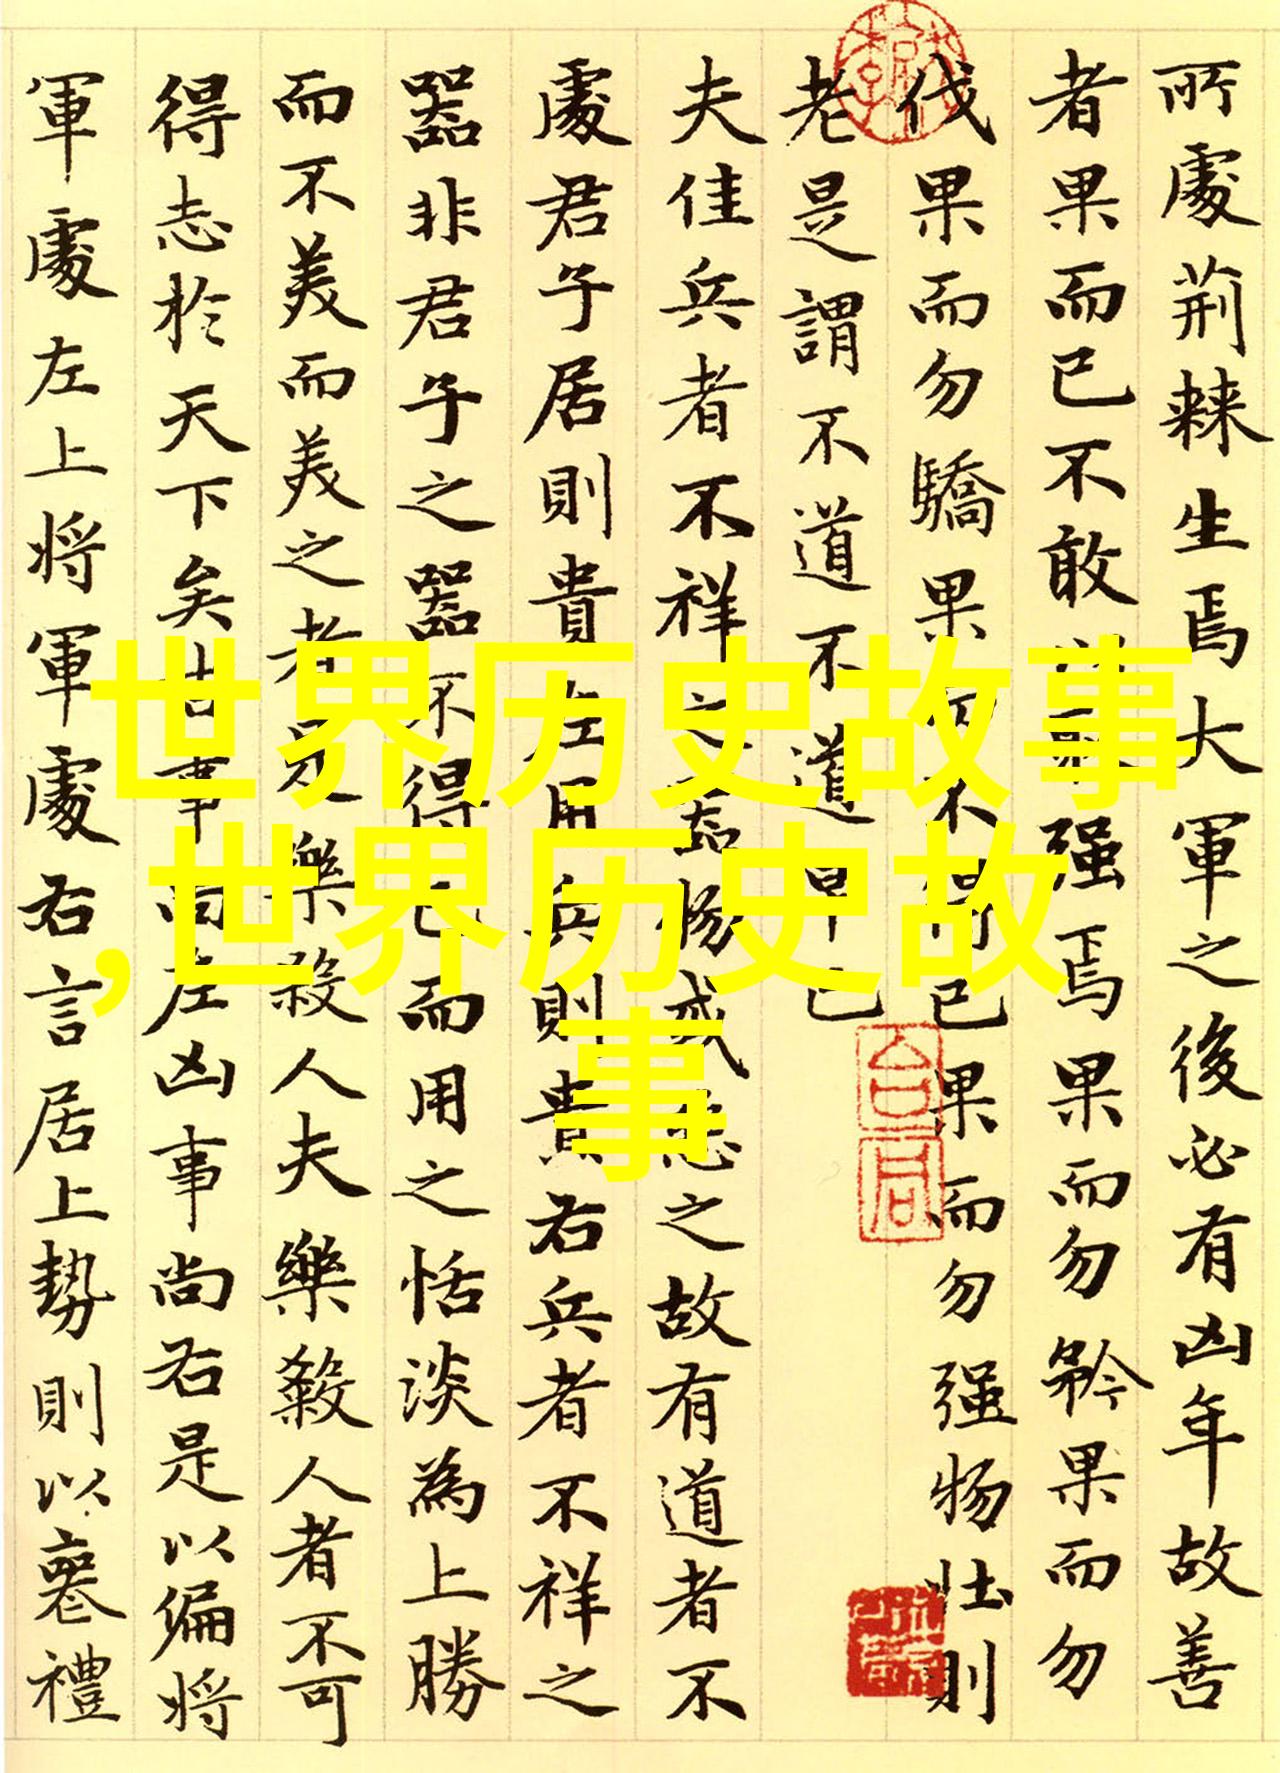 所處荊棘生焉大軍之後必有凶年故善
者果而已不敢以取强焉果而勿矜果而勿
伐果而勿驕果而不得已果而勿强物壮則
老是謂不道不道早已
夫佳兵者不祥之器物或惡之故有道者不
處君子居則貴左用兵則貴右兵者不祥之
器非君子之器不得已而用之恬淡為上勝
而不美而美之者是樂殺人夫樂殺人者不可
得志於天下矣吉事尚左凶事尚右是以偏將
軍處左上將軍處右言居上勢則以喪禮
世界历史故事
,世界历史故
事